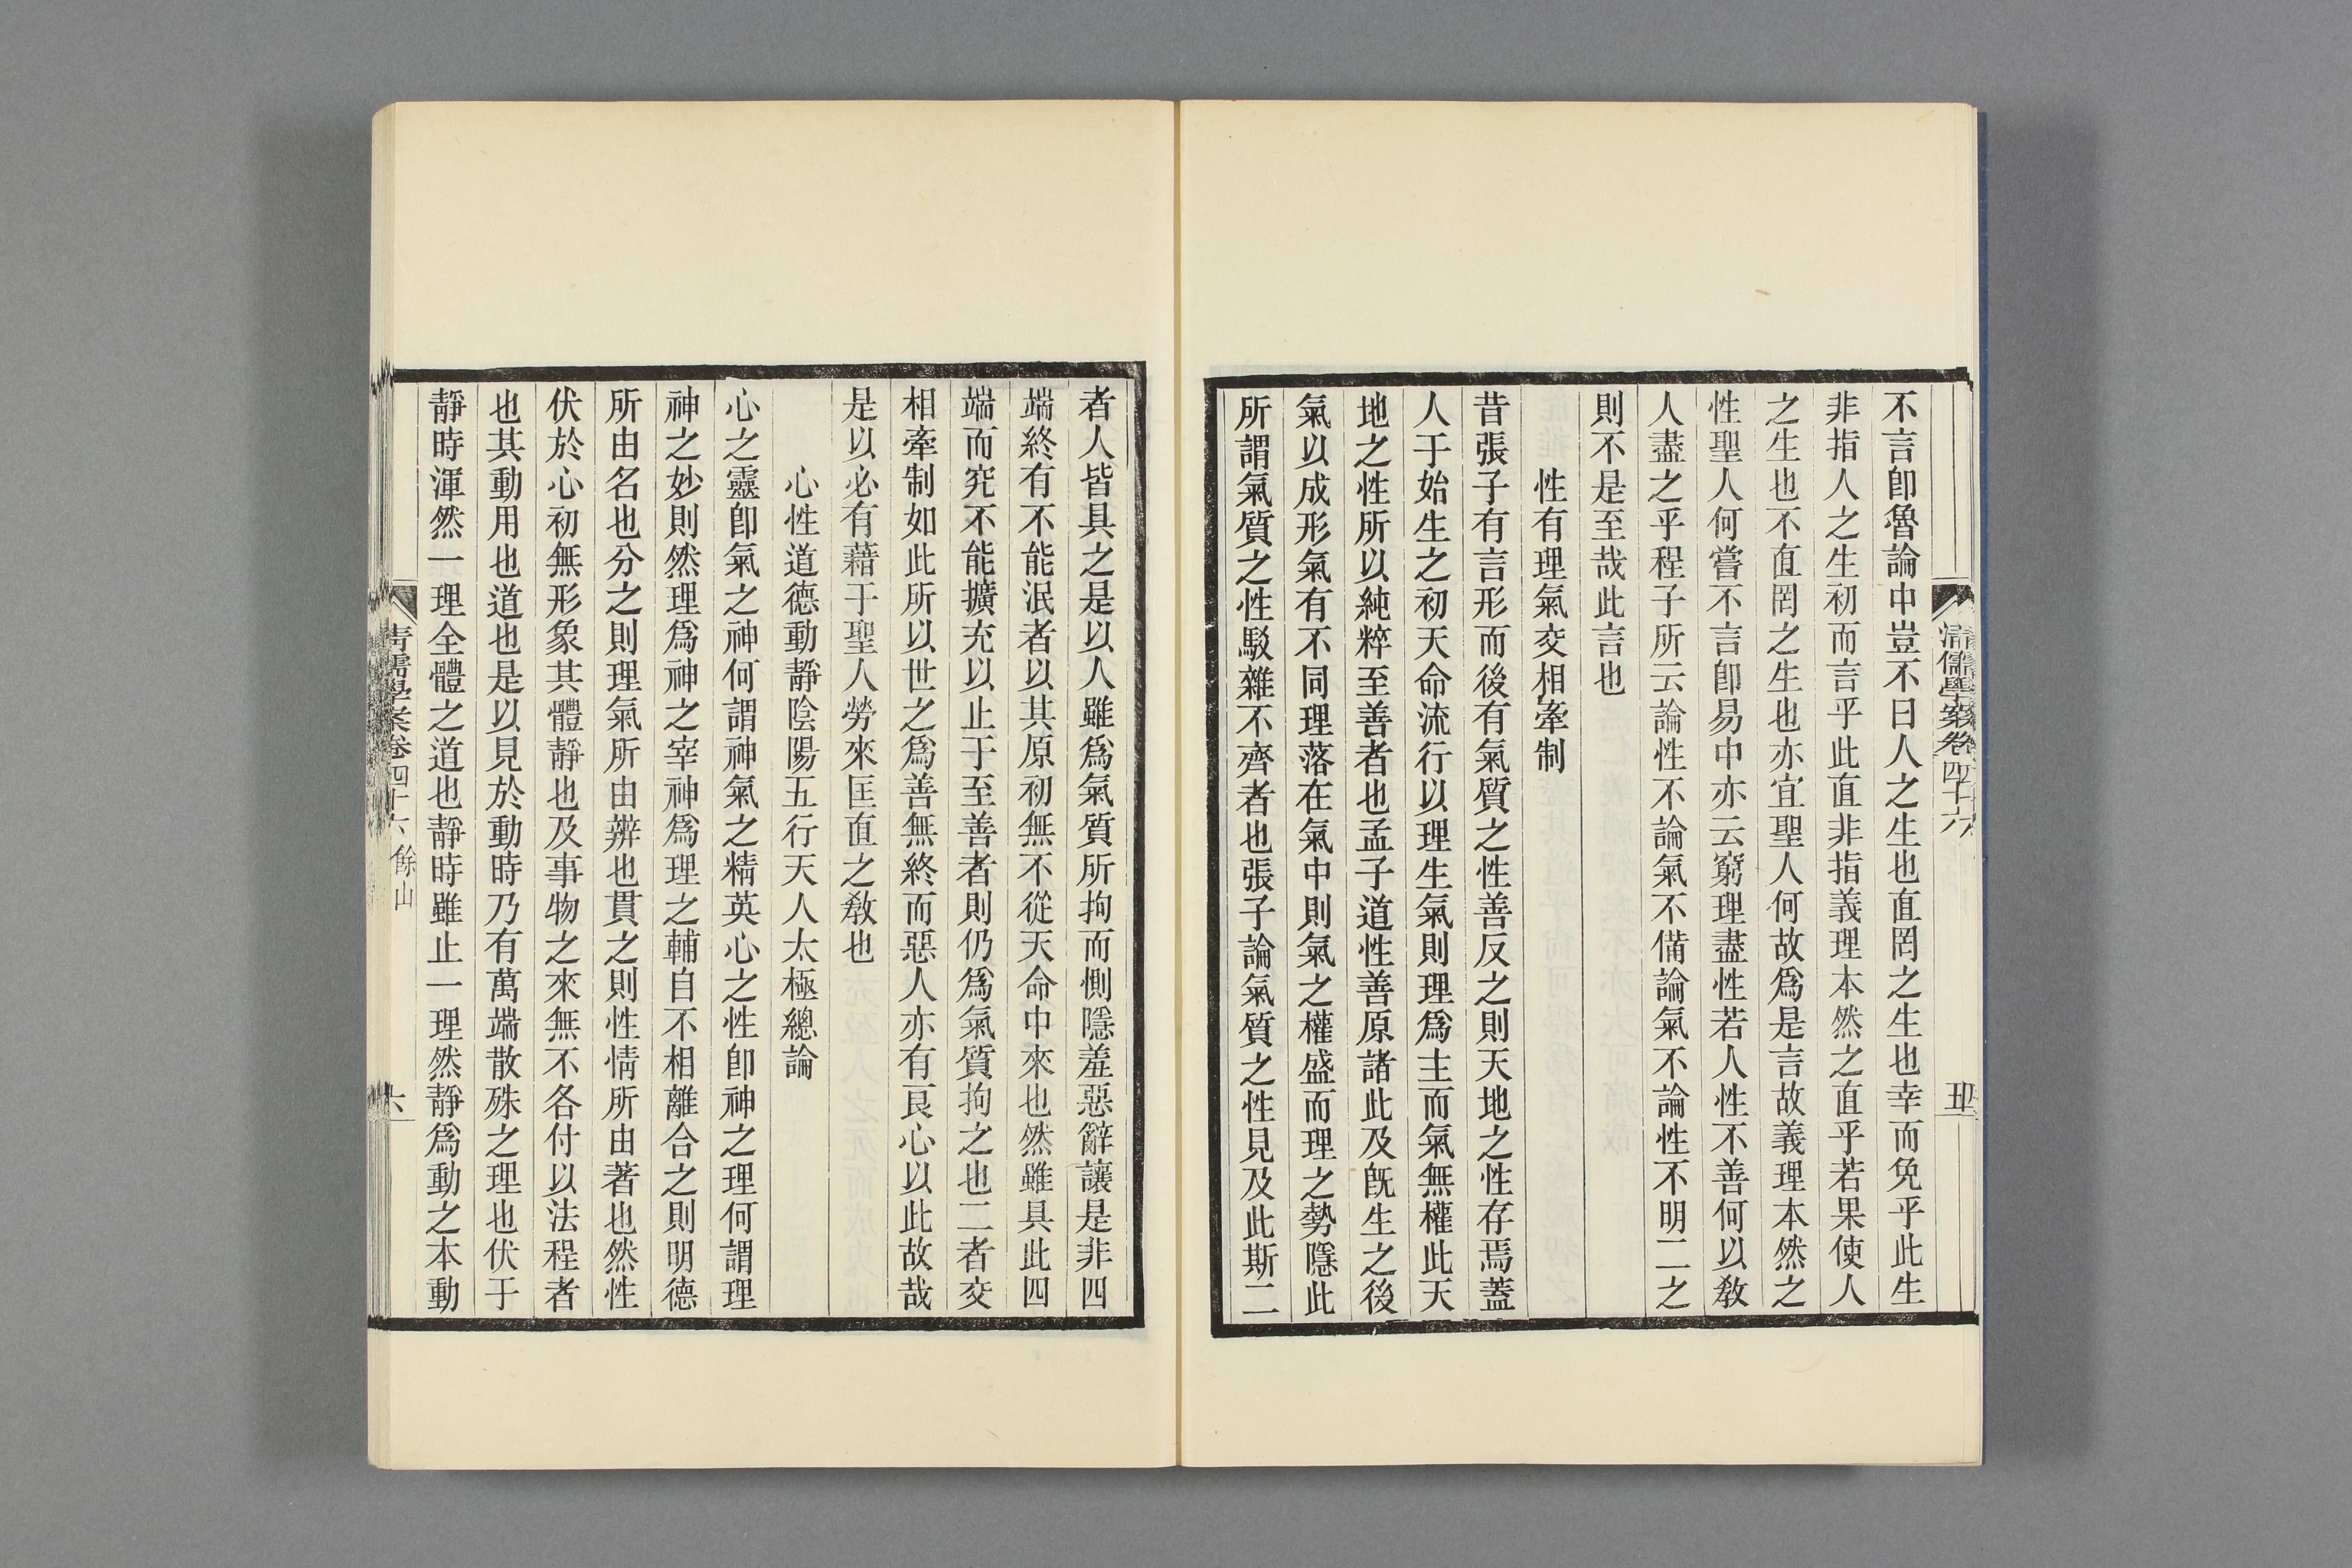 清儒學案卷四十六
五
不言卽魯論中豈不曰人之生也直罔之生也幸而免乎此生
非指人之生初而言乎此直非指義理本然之直乎若果使人
之生也不直罔之生也亦宜聖人何故爲是言故義理本然之
性聖人何嘗不言卽易中亦云窮理盡性若人性不善何以敎
人盡之乎程子所云論性不論氣不備論氣不論性不明二之
則不是至哉此言也
性有理氣交相牽制
昔張子有言形而後有氣質之性善反之則天地之性存焉蓋
人于始生之初天命流行以理生氣則理爲主而氣無權此天
地之性所以純粹至善者也孟子道性善原諸此及旣生之後
氣以成形氣有不同理落在氣中則氣之權盛而理之勢隱此
所謂氣質之性駁雜不齊者也張子論氣質之性見及此斯二
者人皆具之是以人雖爲氣質所拘而惻隱羞惡辭讓是非四
端終有不能泯者以其原初無不從天命中來也然雖具此四
端而究不能擴充以止于至善者則仍爲氣質拘之也二者交
相牽制如此所以世之爲善無終而惡人亦有良心以此故哉
是以必有藉于聖人勞來匡直之敎也
心性道德動靜陰陽五行天人太極總論
心之靈卽氣之神何謂神氣之精英心之性卽神之理何謂理
神之妙則然理爲神之宰神爲理之輔自不相離合之則明德
所由名也分之則理氣所由辨也貫之則性情所由著也然性
伏於心初無形象其體靜也及事物之來無不各付以法程者
也其動用也道也是以見於動時乃有萬端散殊之理也伏于
靜時渾然一理全體之道也靜時雖止一理然靜爲動之本動
清儒學案卷四十六 餘山
六